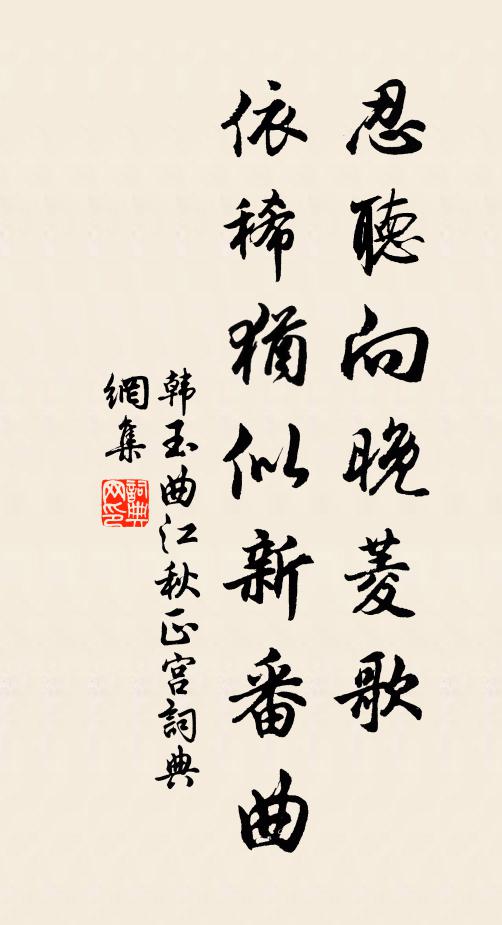 忍聽向晚菱歌
依稀猶似新番曲
韩玉曲江秋正宫詞典
網集
詞典
网印